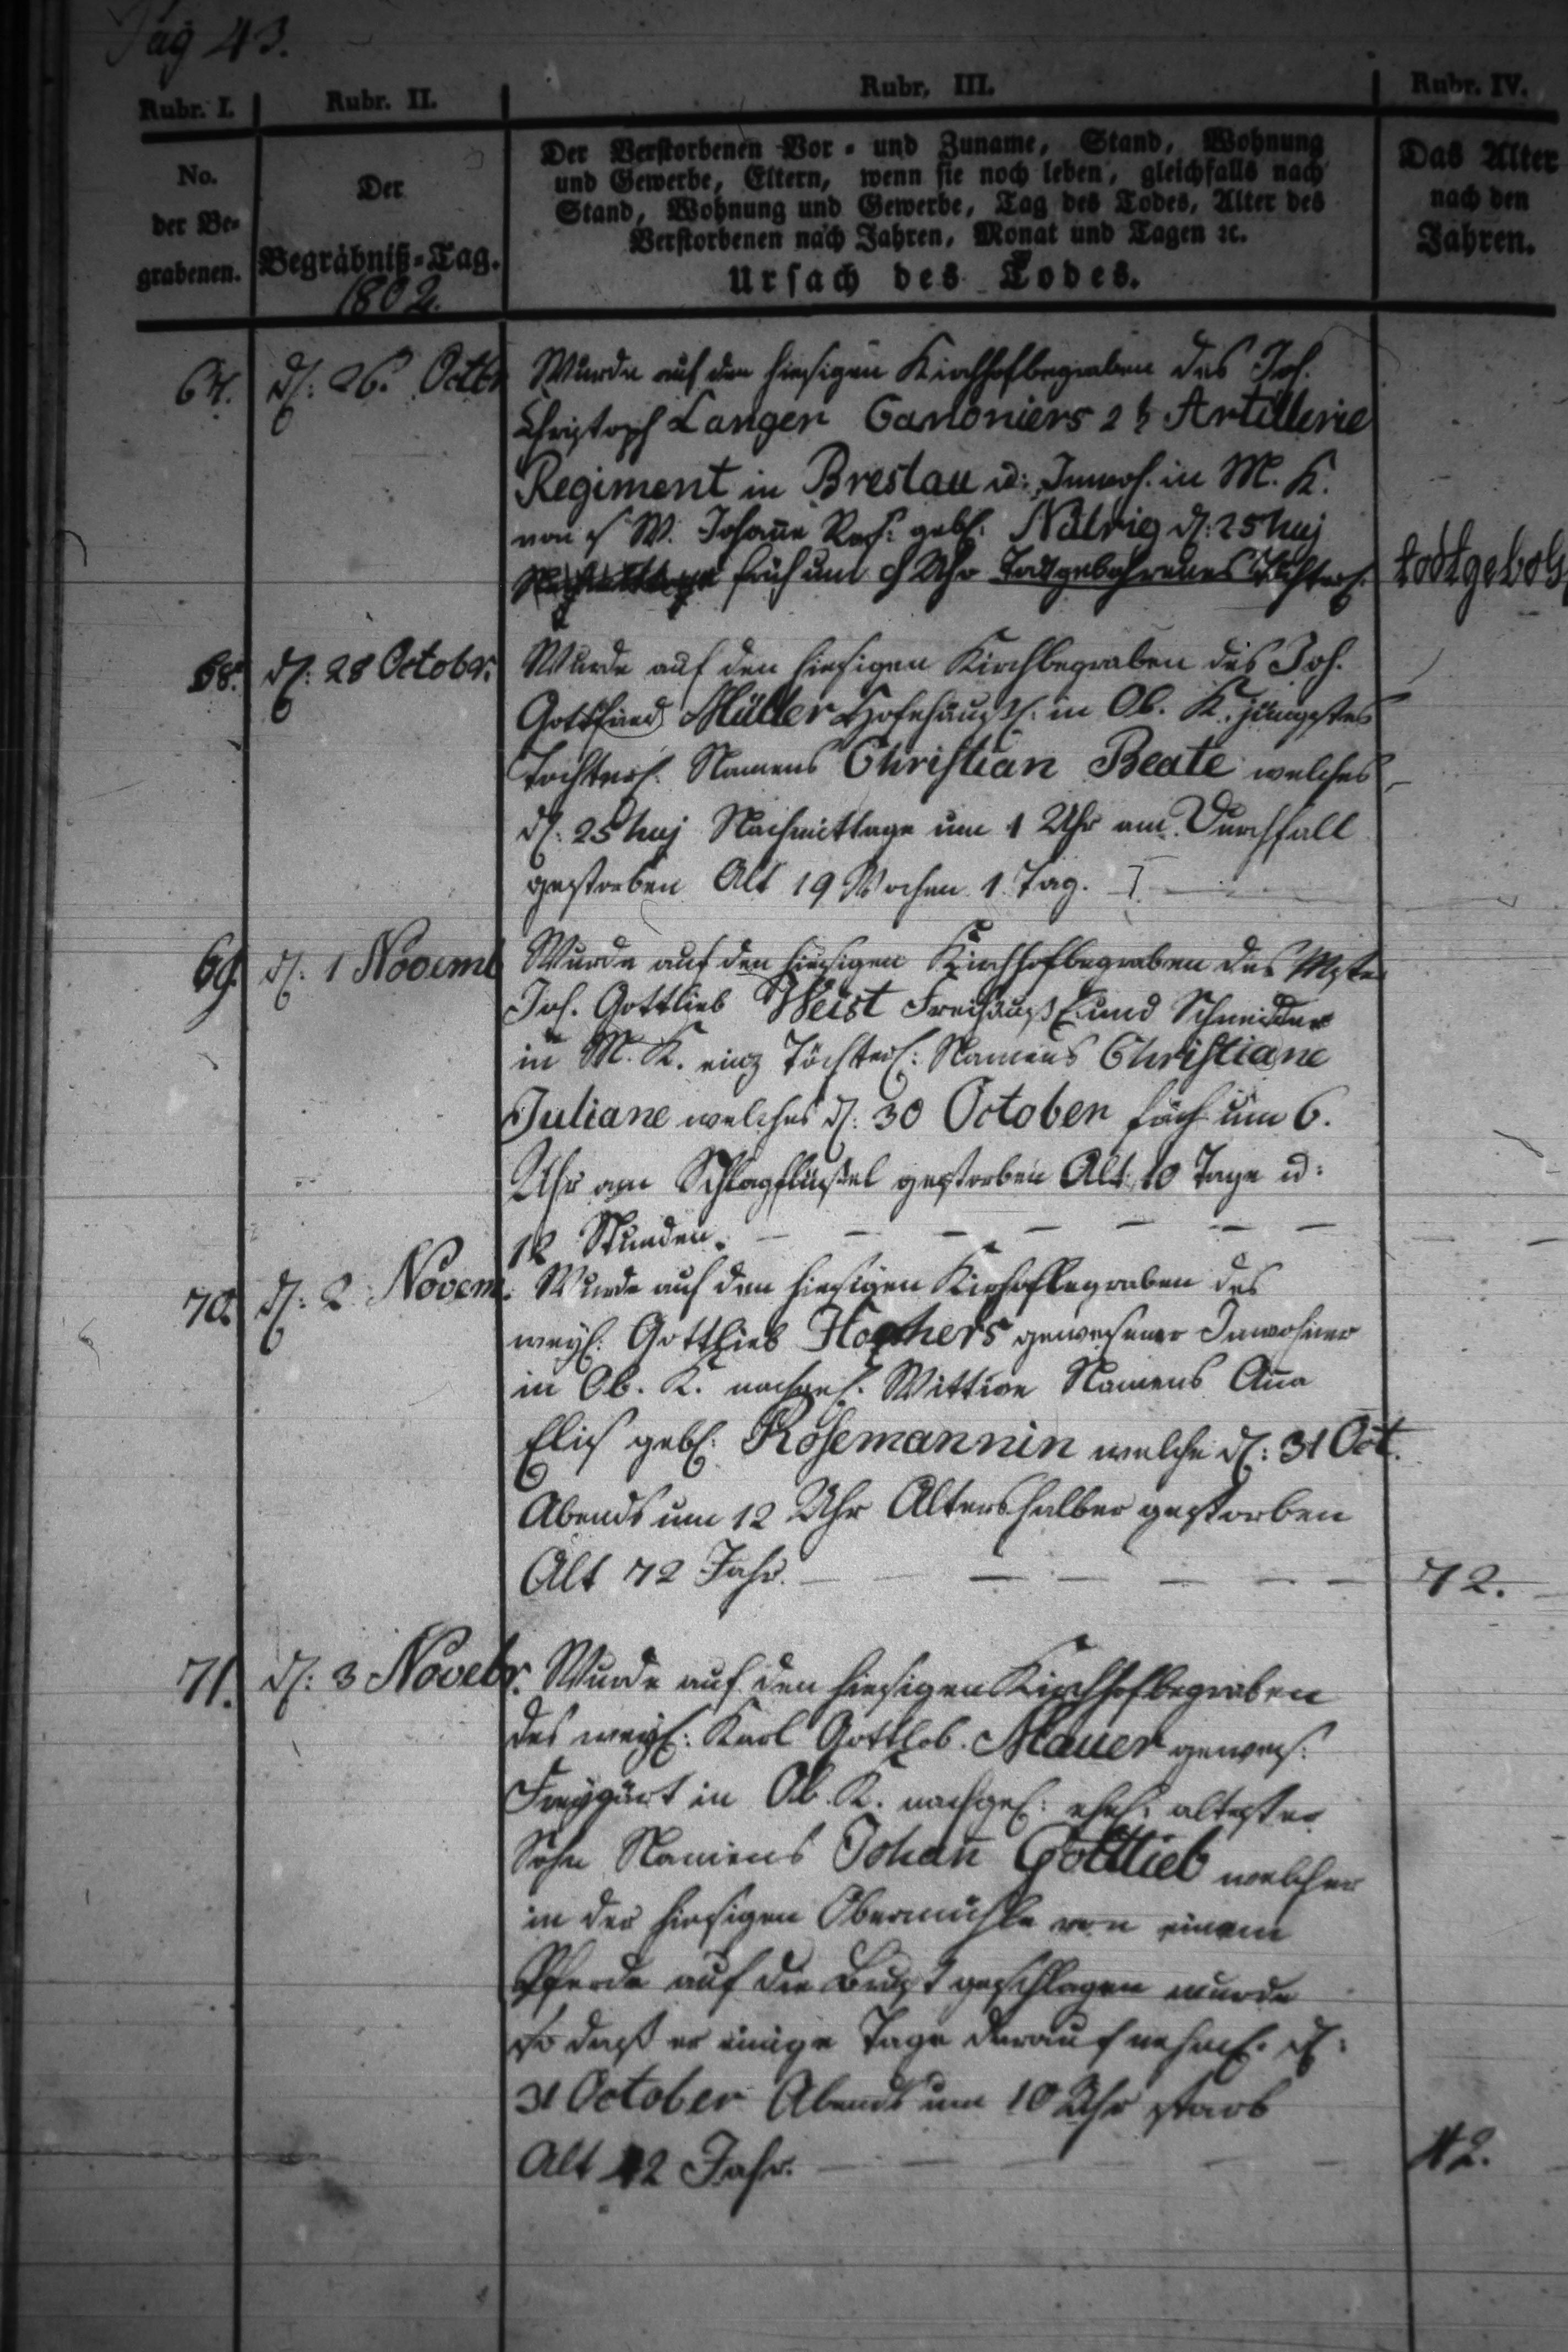 Pag 43.
Rubr. I. Rubr. II. Rubr. III. Rubr. IV.
No. der Be- grabenen.
Der Begräbniß-Tag. 1802.
Der Verstorbenen Vor- und Zuname, Stand, Wohnung
und Gewerbe, Eltern, wenn sie noch leben, gleichfalls nach
Stand, Wohnung und Gewerbe, Tag des Todes, Alter des
Verstorbenen nach Jahren, Monat und Tagen ꝛc.
Ursach des Todes.
Das Alter
nach den
Jahren.
67. d: 26. Octbr Wurde auf den hiesigen Kirchhof begraben des Joh.
Christoph Langer Canoniers 2 Artillerie
Regiment in Breslau u: Inwoh. in M. K.
von s W. Johañe Ros: geb: d: 25 huj
früh um Uhr Todgebohrenes Töchterl. todtgeboh
68. d: 28 Octobr. Wurde auf den hiesigen Kirchbegraben des Joh.
Gottfried Müller Hofehäußl: in Ob. K. jüngstes
Töchterl. Namens Christian Beate welches
d: 25 huj Nachmittage um 1 Uhr am Durchfall
gestorben Alt 19 Wochen 1. Tag.
69. d: 1 Novemb Wurde auf den hiesigen Kirchhof begraben des Mstr
Joh. Gottlieb Weist Freihäußl: und Schneider
in M. K. einz Töchterl: Namens Christiane
Juliane welches d: 30 October früh um 6.
Uhr am Schlagflüßel gestorben Alt 10 Tage u:
12 Stunden.
70. d: 2 Novem. Wurde auf den hiesigen Kirchhof begraben des
weyl: Gottlieb gewesener Inwohner
in Ob. K. nachgel. Wittwe Namens Aña
Elis geb: Rosemannin welche d: 31 Oct.
Abends um 12 Uhr Altershalber gestorben
Alt 72 Jahr. 72.
71. d: 3 Novebr. Wurde auf den hiesigen Kirchhof begraben
des weyl: Karl Gottlob. Mauer gewes:
Freygärt in Ob. K. nachgel: ehel: altester
Sohn Namens Johañ Gottlieb welcher
in der hiesigen Obermühle von einem
Pferde auf die Brust geschlagen wurde
so daß er einige Tage darauf nehml. d:
31 October Abends um 10 Uhr starb
Alt 42 Jahr. 42.